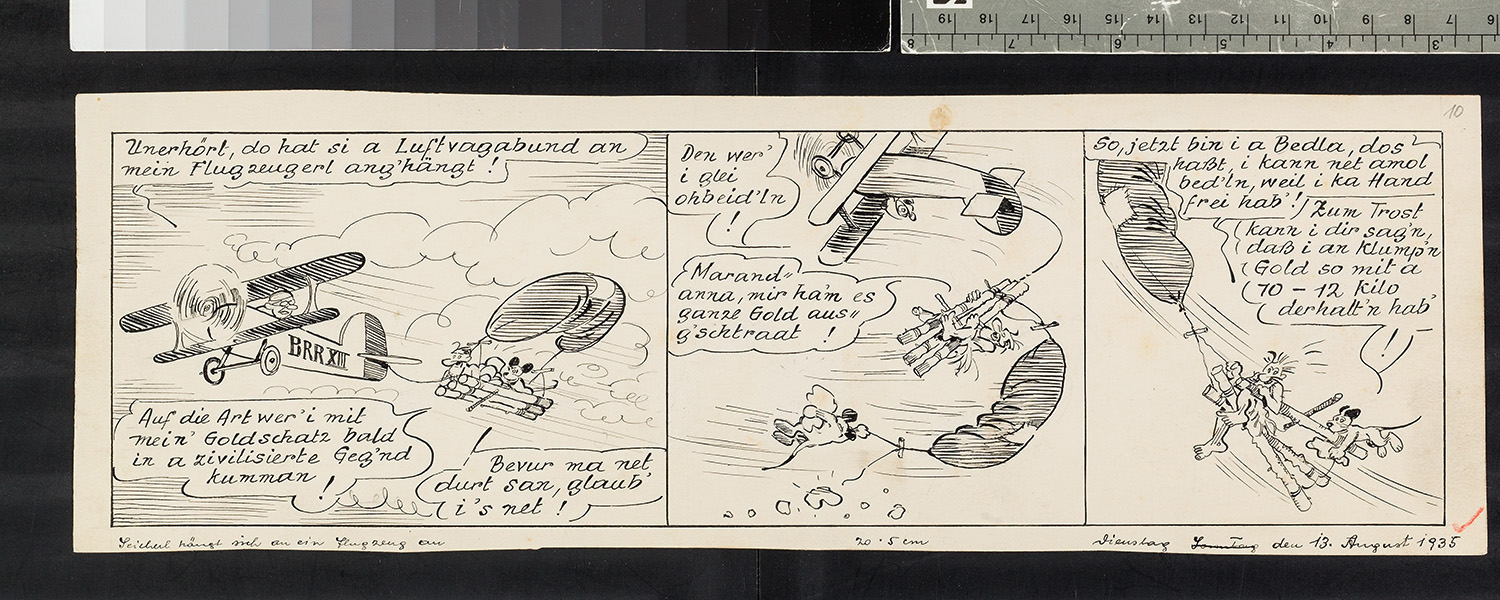 10
Unerhört, do hat si a Luftvagabund an
mein Flugzeugerl ang'hängt!
BRR XIII
Auf die Art wer' i mit
mein' Goldschatz bald
in a zivilisierte Geg'nd
kumman!
Bevur ma net
durt san, glaub'
i's net!
Den wer'
i glei
ohbeid'ln
!
Marand"
anna, mir ha'm es
ganze Gold aus"
g'schtraat !
So, jetzt bin i a Bedla, dos
haßt, i kann net amol
bed'ln, weil i ka Hand
frei hab'!
Zum Trost
kann i dir sag'n,
daß i an Klump'n
Gold so mit a
10 - 12 Kilo
derhalt'n hab'
!
Seicherl hängt sich an ein Flugzeug an
20·5 cm
Dienstag Sonntag den 13. August 1935
19 18 17 16 15 14 13 12 11 10 9 8 7 6
8 7 6 5 4 3